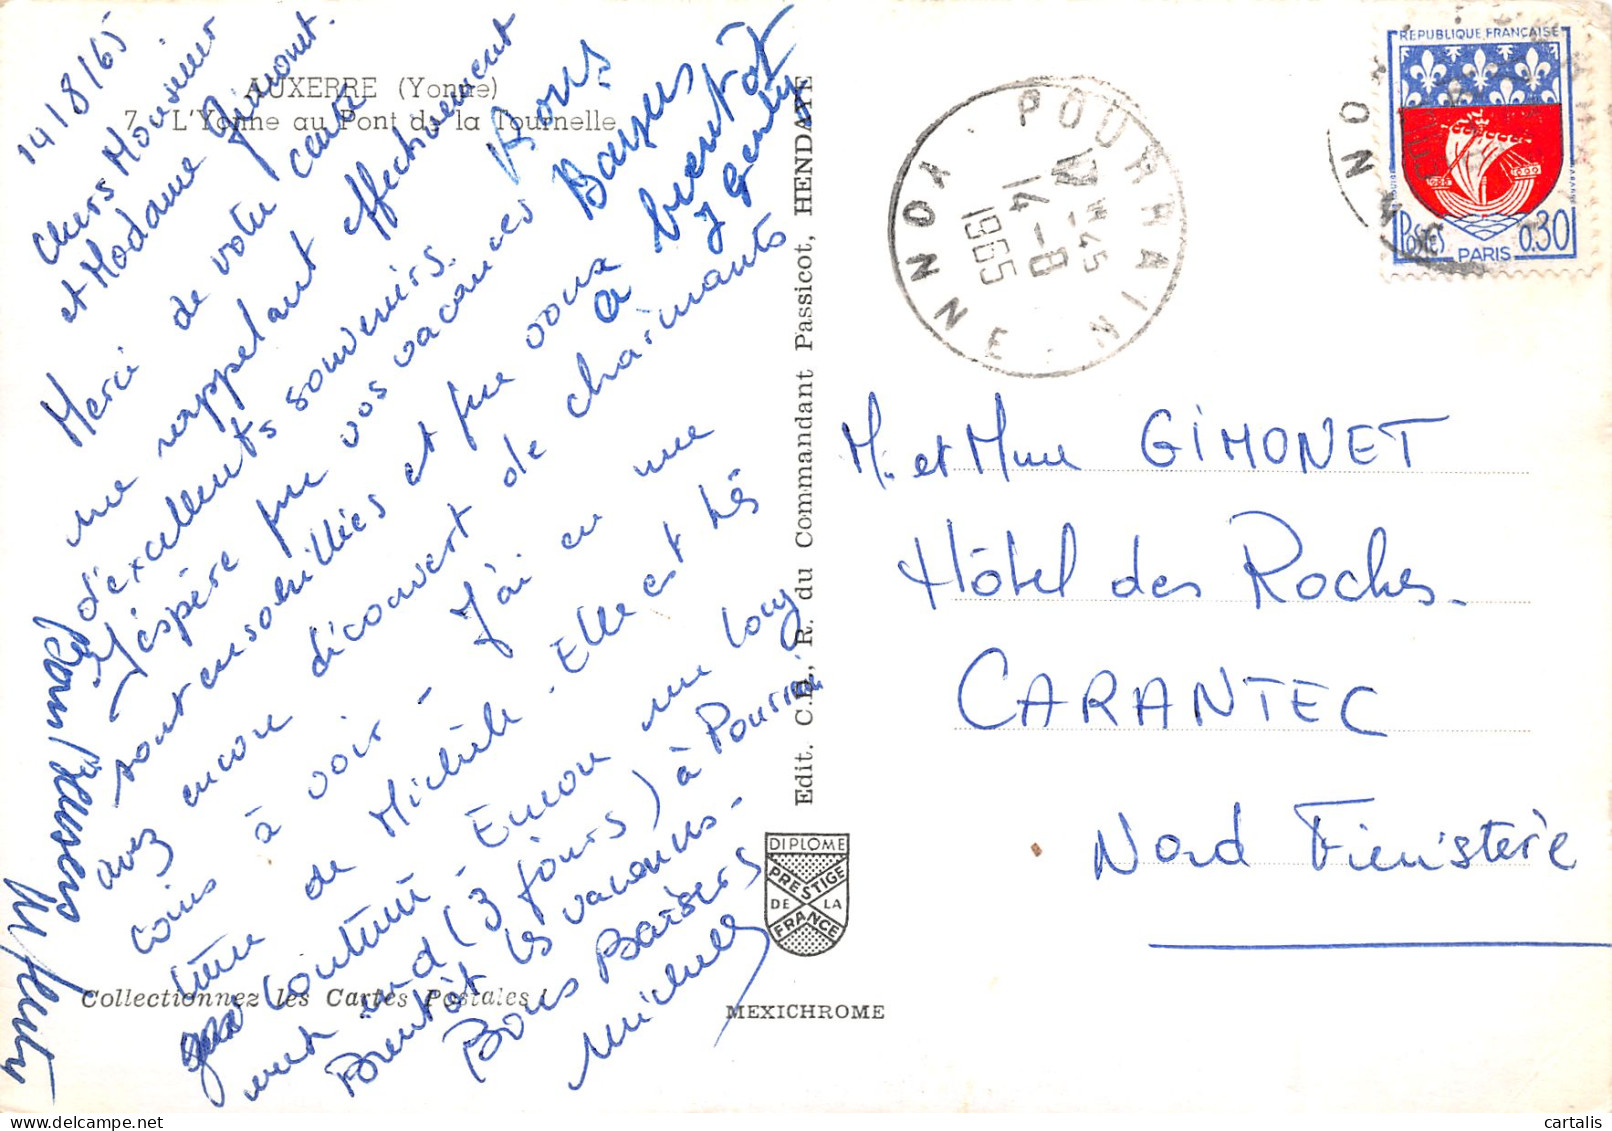 14/8/65
Chers Monsieur
et Madame Gimonet.
Merci de votre carte
me rappelant effectivement
d'excellents souvenirs.
J'espère que vos vacances
sont ensoleillées et que vous
avez encore découvert de charmants
coins à voir - J'ai eu une
lettre de Michèle. Elle est très
contente - Encore un long
week end (3 jours) à Pourrain
Bientôt les vacances -
Bons Baisers
Michelle
Bons
Baisers
à bientôt
AUXERRE (Yonne)
7. L'Yonne au Pont de la Tournelle
Collectionnez les Cartes Postales !
Edit. C.D., R. du Commandant Passicot, HENDAYE
DIPLOME
PRESTIGE
DE LA
FRANCE
MEXICHROME
POURRAIN
YONNE
14-8
1965
REPUBLIQUE FRANÇAISE
POSTES
PARIS
0,30
M. et Mme GIMONET
Hôtel des Roches.
CARANTEC
Nord Finistère
cartalis